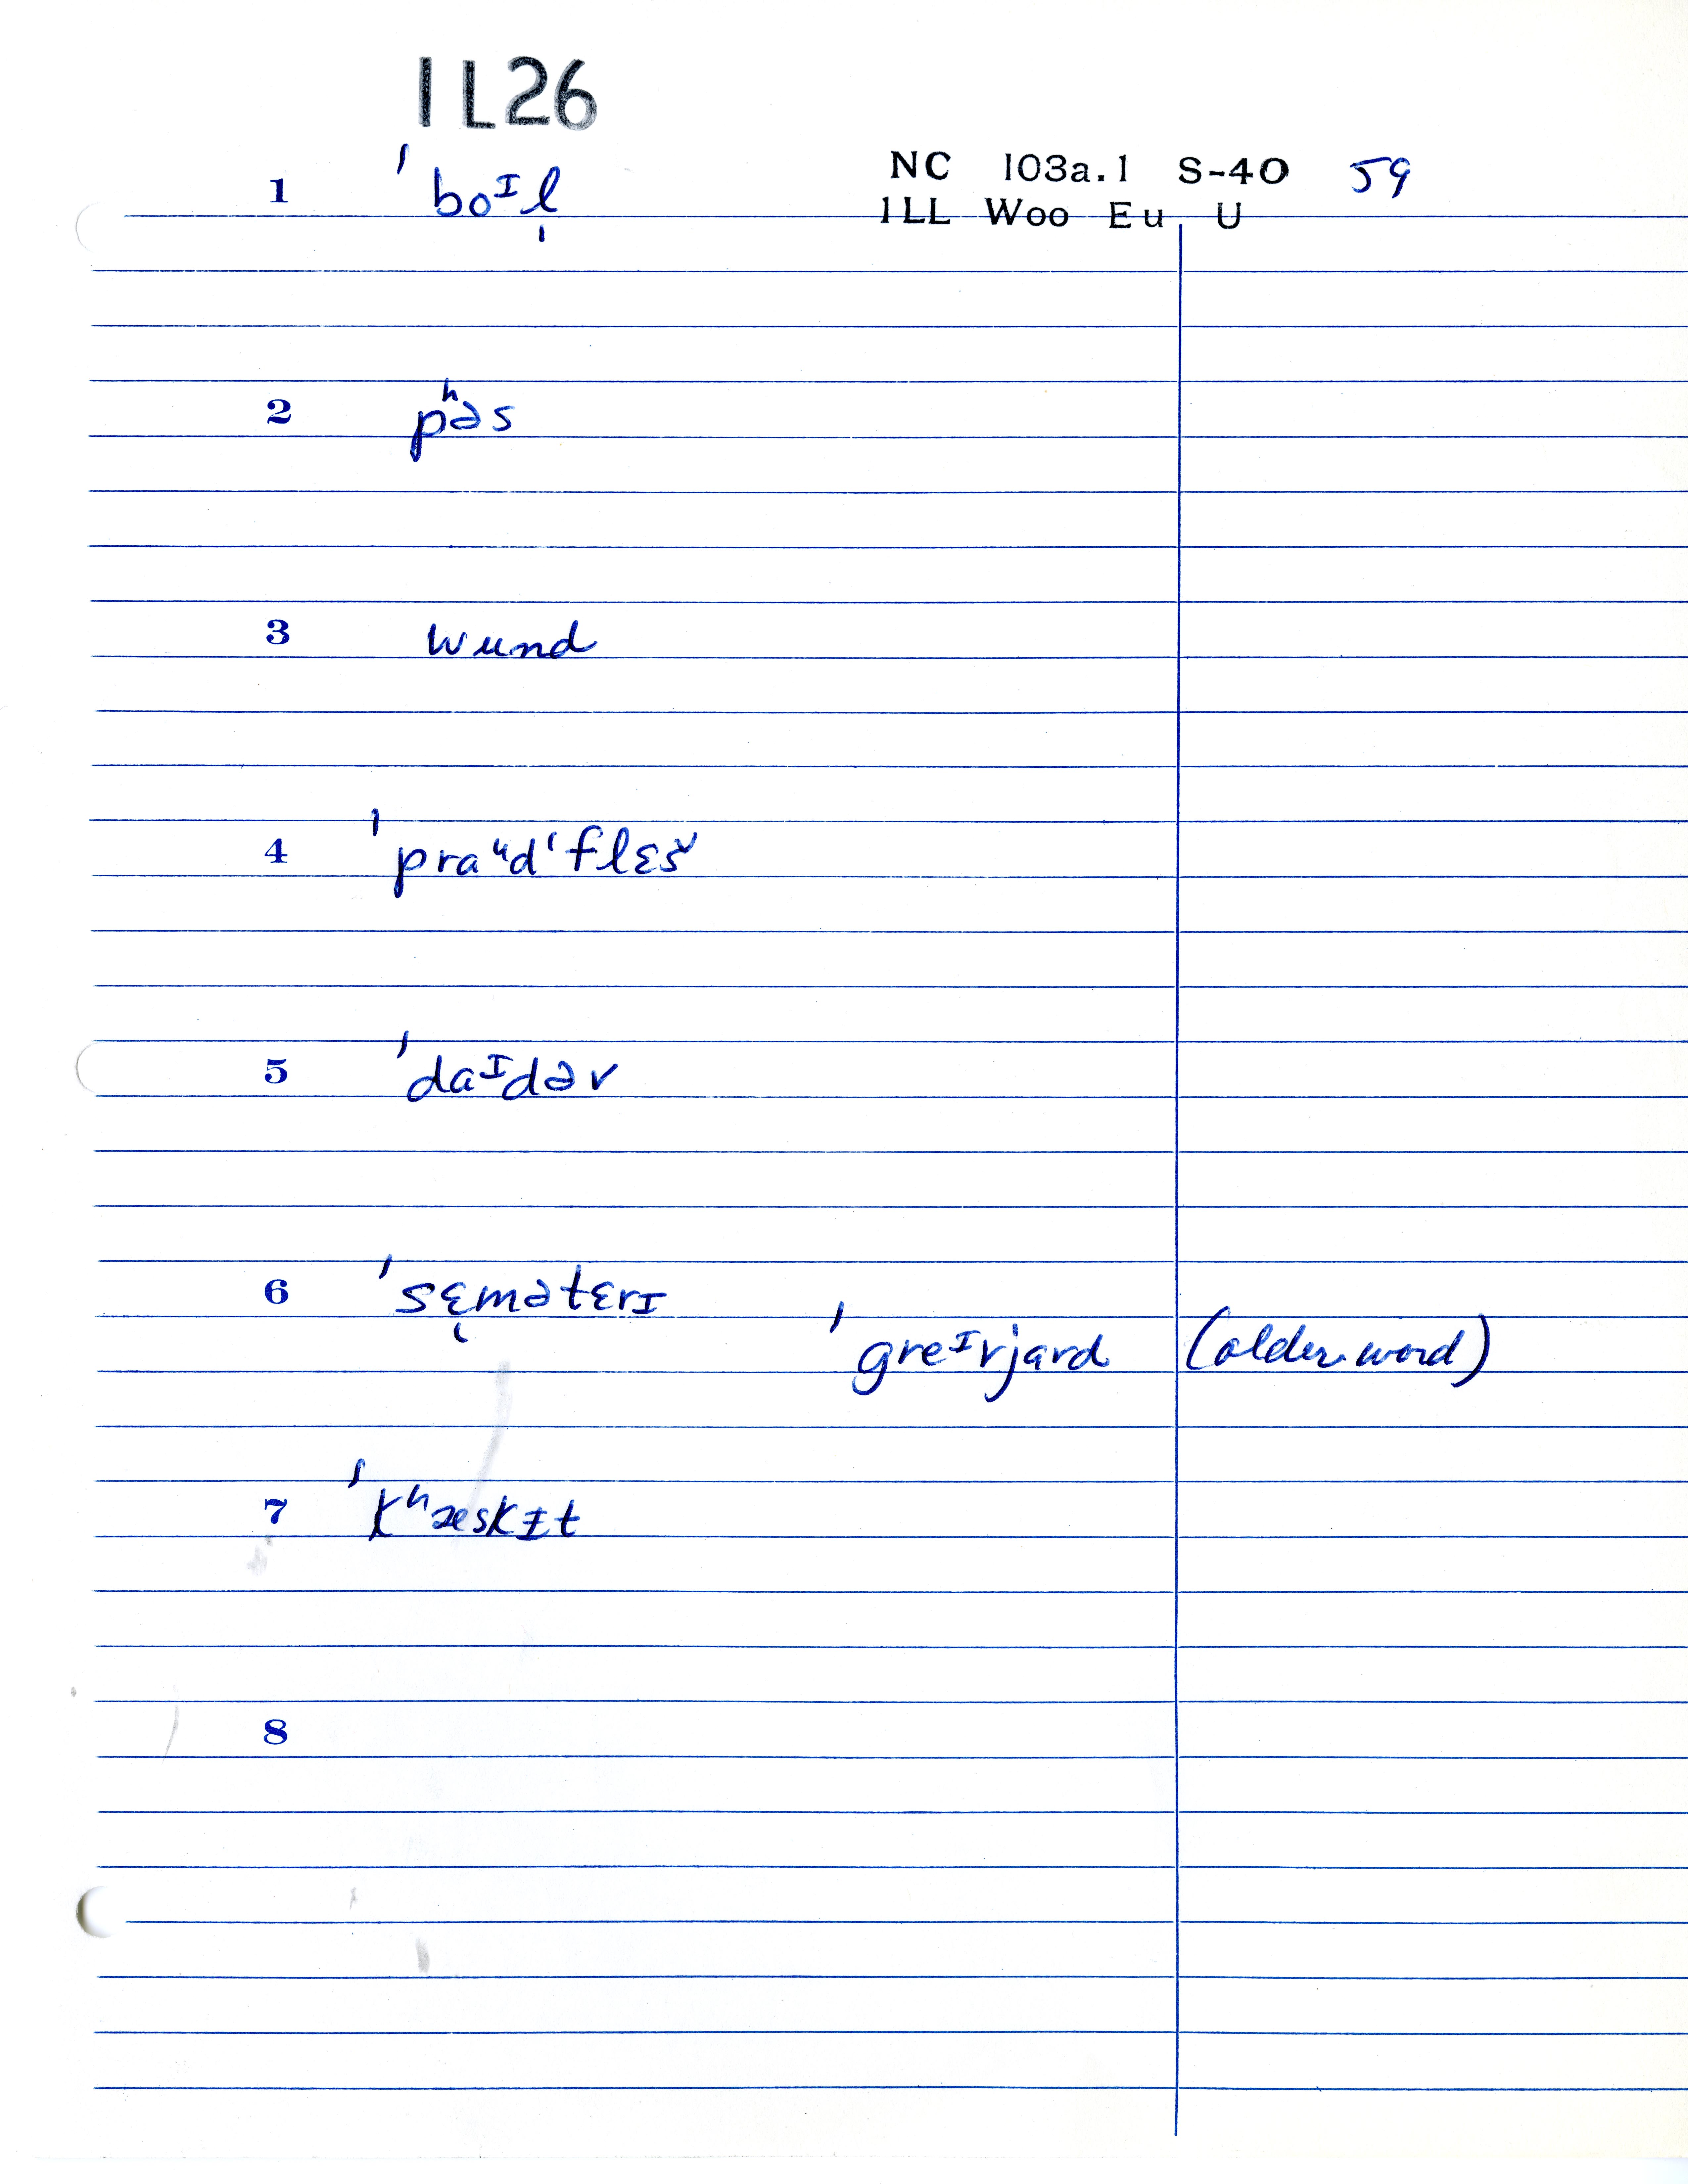 IL26
NC 103a.1 S-40 59
ILL Woo Eu U
1 ˈboᴵl̩
2 pʰəs
3 wund
4 ˈpraᵘdˈflɛš
5 ˈdaᴵdəv
6 ˈsɛ̨mətɛrɪ
ˈgreᴵvjard (older word)
7 ˈkʰæskɪt
8